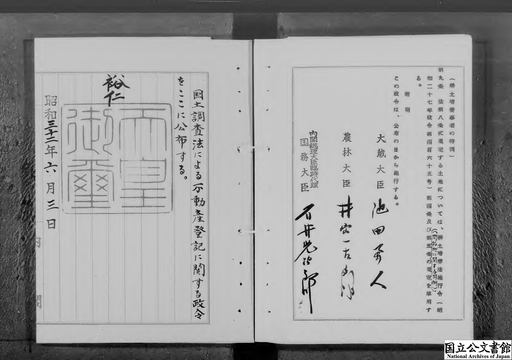 （耕土培養事業の特例）
第九条　法第八条に規定する土地については、耕土培養法施行令（昭
和二十七年政令第四百六十五号）
る。
附則
この政令は、公布の日から施行する。
大蔵大臣　池田勇人
農林大臣　井出一太郎
内閣総理大臣臨時代理
国務大臣　石井光次郎
国土調査法による不動産登記に関する政令
をここに公布する。
裕仁
天皇
御璽
昭和三十二年六月三日
内閣
国立公文書館
National Archives of Japan